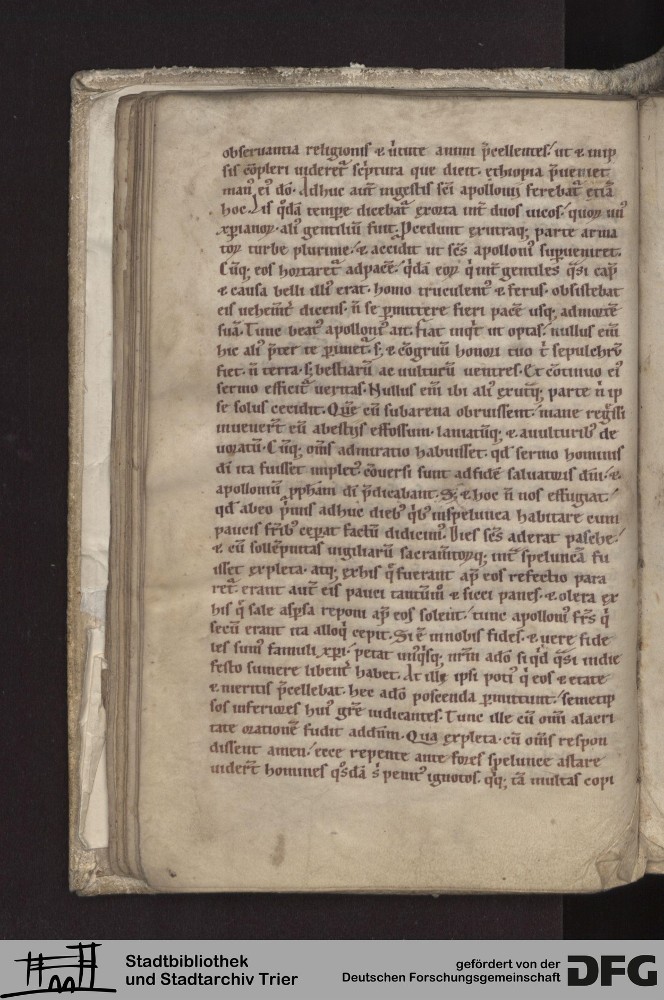 obseruantia religionis & uirtute animi p̄cellentes. ut & in ip
sis cōpleri uideret᷑ sc̄ptura que dicit. ethiopia p̄ueniet
man᷒ ei᷒ dō. Adhuc aut̄ in gestis sc̄i apollonij ferebat᷑ etiā
hoc. Is q̄dā tempr̄e dicebat᷑ exorta int̄ duos uicos. quoꝝ un᷒
xp̄ianoꝝ. ali᷒ gentiliū fuit. Pcedunt ex utraq; parte arma
toꝝ turbe plurime. & accidit ut sc̄s apolloni᷒ supueniret.
Cūq; eos hortaret᷑ ad pacē. q̄dā eoꝝ q̄ int̄ gentiles q̄si cap᷒
& causa belli illi᷒ erat. homo truculent᷒ & ferus. obsistebat
eis uehemt̄ dicens. n̄ se ꝑmittere fieri pacē usq; ad mortē
suā. Tunc beat᷒ apolloni᷒ ait. fiat inqt ut optas. nullus em̄
hic ali᷒ p̄ter te ꝑimet᷑. s; & cōgruū honori tuo t᷒ sepulchrū
fiet. n̄ terra. s; bestiarū ac uulturū uentres. Et cōtinuo ei᷒
sermo efficit᷑ ueritas. Nullus em̄ ibi ali᷒ ex utq; parte n̄ ip
se solus cecidit. Que cū sub arena obruissent. mane reg̃ssi
inuener̄t eū a bestijs effossum. laniatūq; & a uulturib᷒ de
uoratū. Cūq; om̄s admiratio habuisset. qd̄ sermo hominis
dī ita fuisset implet᷒. cōuersi sunt ad fidē saluatoris dn̄i. &
apollonium ꝓpham dī p̄dicabant. S; & hoc n̄ nos effugiat.
qd̄ ab eo p̄mis adhuc dieb᷒ q̄b᷒ in spelunca habitare cum
paucis fr̄ib᷒ ceꝑat factū didicim᷒. Dies sc̄s aderat pasche.
& cū sollēpnitas uigiliarū sacramtoꝝq; int̄ speluncā fu
isset expleta. atq; ex his q̄ fuerant ap᷒ eos refectio para
ret᷑. erant aut̄ eis pauci tantūm᷒ & sicci panes. & olera ex
his q̄ sale asp̄sa reponi ap᷒ eos solent. tunc apolloni᷒ fr̄s q̄
secū erant ita alloq̄ cepit. Si ē in nobis fides. & uere fide
les sum᷒ famuli xp̄i. petat un᷒q̄sq; nr̄m a dō si q̄d q̄si in die
festo sumere libent᷑ habet. At illi ipsi poti᷒ q̄ eos & etate
& meritis p̄cellebat. hec a dō poscenda ꝑmittunt. semetip
sos inferiores hui᷒ gr̄e iudicantes. Tunc ille cū om̄i alacri
tate orationē fudit ad dn̄m. Qua expleta. cū om̄s respon
dissent amen. ecce repente ante fores spelunce astare
uider̄t homines q̄sdā s̄ penit᷒ ignotos. q̄q; tā multas copi
Stadtbibliothek
und Stadtarchiv Trier
gefördert von der
Deutschen Forschungsgemeinschaft
DFG